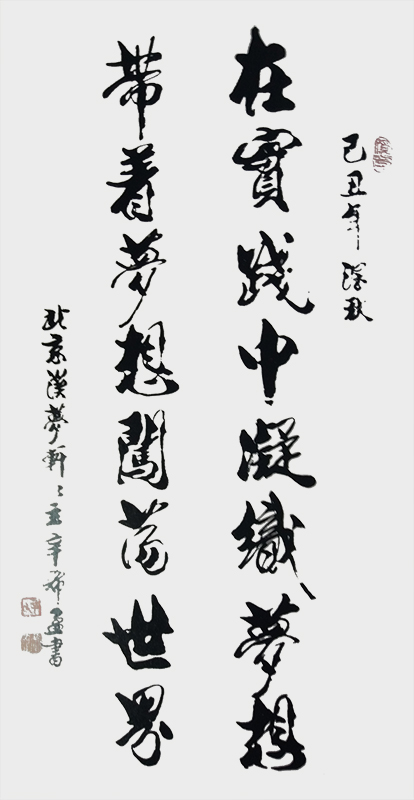 己丑年深秋
在實踐中凝織夢想
帶着夢想闖蕩世界
北京漢夢軒
主辛希孟書